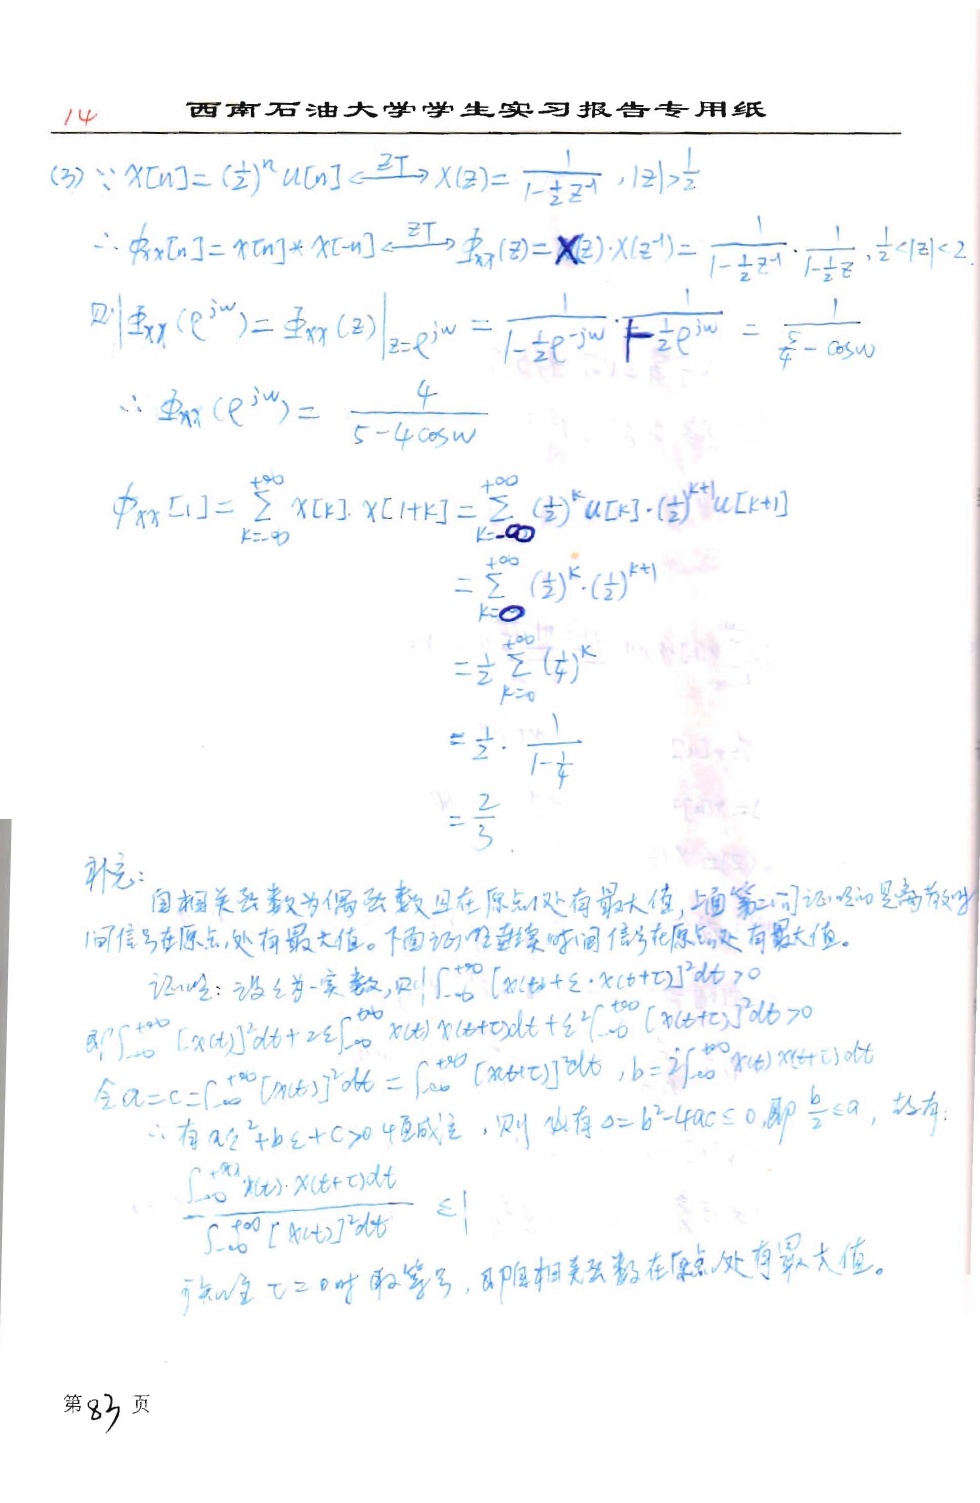 14 西南石油大学学生实习报告专用纸
(3) ∵ x[n]=(1/2)^n u[n] ←ZT→ X(z)= 1/(1-1/2 z^-1) , |z|>1/2
∴ φxx[n]=x[n]*x[-n] ←ZT→ Φxx(z)=X(z)·X(z^-1)= 1/(1-1/2 z^-1) · 1/(1-1/2 z) , 1/2<|z|<2.
则 Φxx(e^jw)=Φxx(z)|z=e^jw = 1/(1-1/2 e^-jw) · 1/(1-1/2 e^jw) = 1/(5/4-cosw)
∴ Φxx(e^jw)= 4/(5-4cosw)
φxx[1]= Σ(k=-∞,+∞) x[k]·x[1+k] = Σ(k=-∞,+∞) (1/2)^k u[k]·(1/2)^(k+1) u[k+1]
= Σ(k=0,+∞) (1/2)^k·(1/2)^(k+1)
= 1/2 Σ(k=0,+∞) (1/4)^k
= 1/2 · 1/(1-1/4)
= 2/3.
补充:
自相关函数为偶函数且在原点处有最大值,上面第二问证明的是离散时
间信号在原点处有最大值。下面证明连续时间信号在原点处有最大值。
证明:设ε为一实数,则 ∫(-∞,+∞) [x(t)+ε·x(t+τ)]²dt>0
即 ∫(-∞,+∞) [x(t)]²dt+2ε∫(-∞,+∞) x(t)x(t+τ)dt+ε²∫(-∞,+∞) [x(t+τ)]²dt>0
令 a=c=∫(-∞,+∞) [x(t)]²dt=∫(-∞,+∞) [x(t+τ)]²dt , b=2∫(-∞,+∞) x(t)x(t+τ)dt
∴ 有 aε²+bε+c>0 恒成立,则必有 Δ=b²-4ac≤0,即 b/2≤a, 故有:
∫(-∞,+∞) x(t)·x(t+τ)dt / ∫(-∞,+∞) [x(t)]²dt ≤1
τ=0时取等号,即自相关函数在原点处有最大值。
第83页